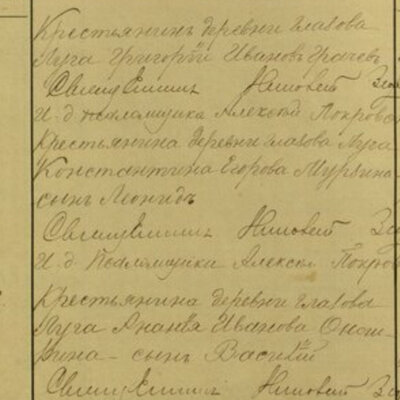 Крестьянинъ деревни Глазова
Луга Григорій Ивановъ Грачевъ
Свящ Николай
И. д. псаломщика Алексѣй Покровс
Крестьянина деревни Глазова Луга
Константина Егорова Мурзина
сынъ Леонидъ
Свящ Николай
И. д. Псаломщика Алексѣй Покров
Крестьянина деревни Глазова
Луга Ананія Иванова Оно
сынъ Василій
Свящ Николай